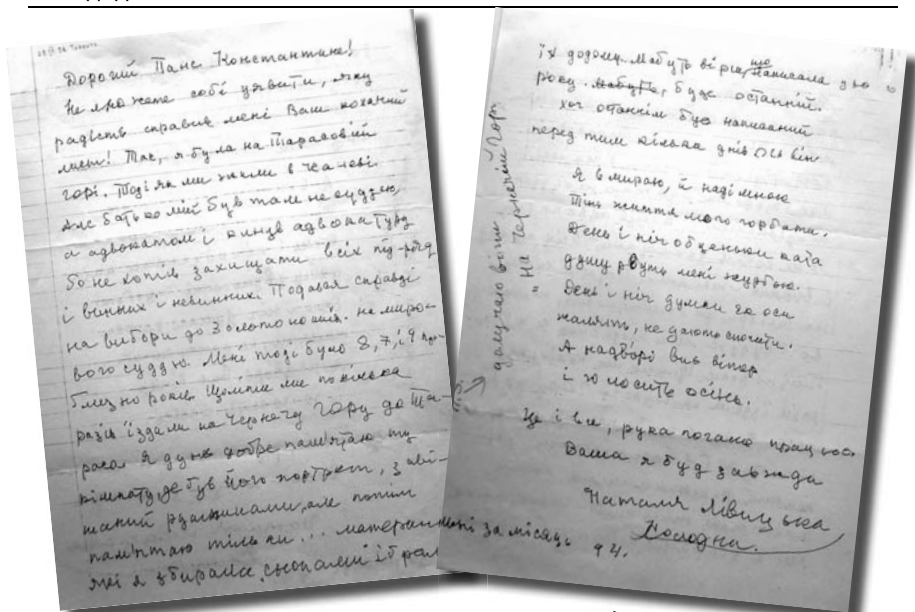 Дорогий Пане Константине!
Не можете собі уявити, яку
радість справив мені Ваш коханий
лист! Так, я була на Тарасовій
горі. Тоді як ми жили в Каневі.
Але батько мій був там не суддею,
а адвокатом і кинув адвокатуру
бо не хотів захищати всіх під-ряд
і винних і невинних. Подавав справді
на вибори до Золотоноші. на миро-
вого суддю. Мені тоді було 8, 7, і 9 при-
близно років. Щоліта ми по кілька
разів їздили на Чернечу гору до Та-
раса. Я дуже добре пам'ятаю ту
кімнату, де був його портрет, заві-
шаний рушниками, але потім
пам'ятаю тільки ... материн
які я збирала снопами і брал
їх додому. Мабуть вірш, що написала цього
року, мабуть, буде останній.
хоч останнім був написаний
перед тим кілька днів ось він
Я вмираю, й наді мною
Тінь життя мого горбата.
День і ніч обценьки ката
душу рвуть мені журбою.
День і ніч думки як оси
жалять, не дають спочити.
А надворі виє вітер
і голосить осінь.
Це і все, рука погано працює.
Ваша я буду завжди
Наталя Лівицька
Холодна.
долучаю вірш
"На Чернечій Горі"
за місяць
94.